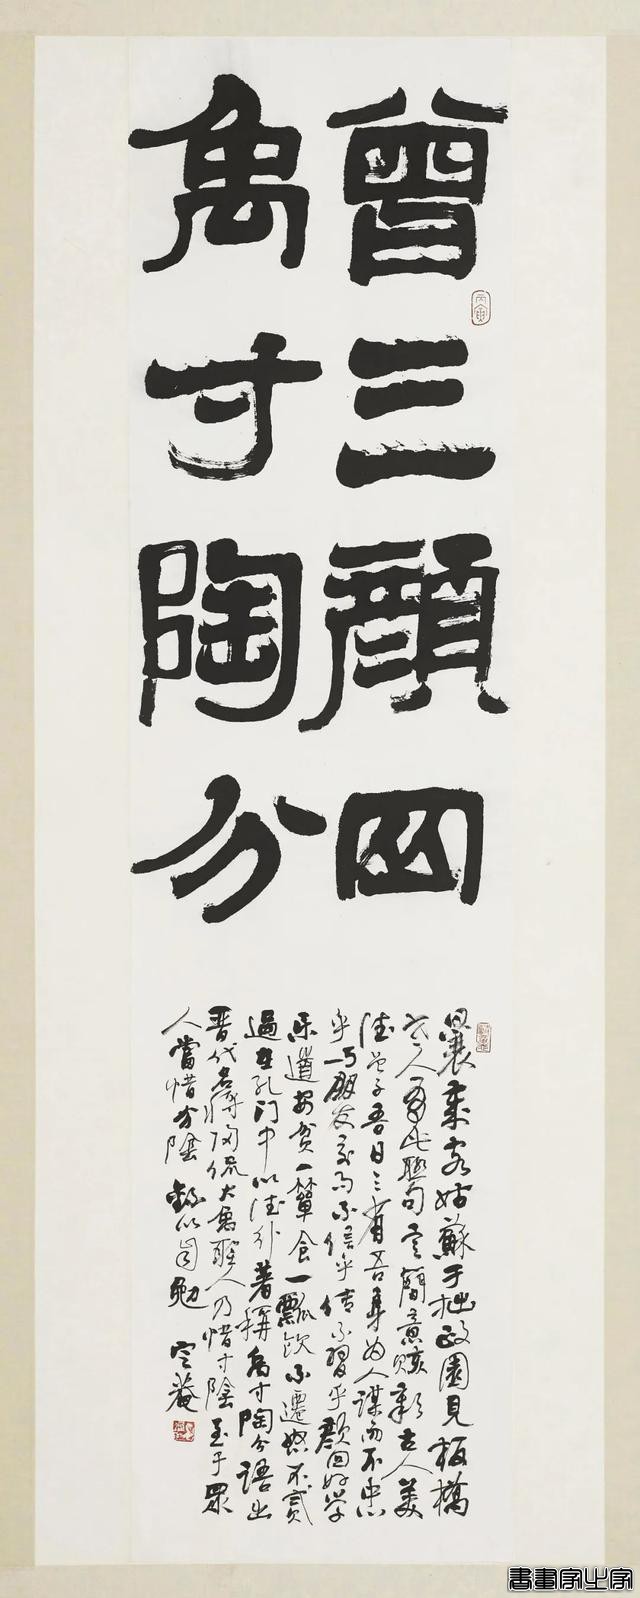 曾三顏四
禹寸陶分
丙寅
曩客姑蘇于拙政園見板橋
人書此聯句言簡意賅彰古人美
德曾子吾日三省吾身为人謀而不忠
乎与朋友交而不信乎傳不習乎顏回好学
乐道安貧一簞食一瓢飲不遷怒不貳
過在孔门中以德行著稱禹寸陶分語出
晉代名將陶侃大禹聖人乃惜寸陰至于眾
人當惜分陰録以自勉 庵
書畫家之家